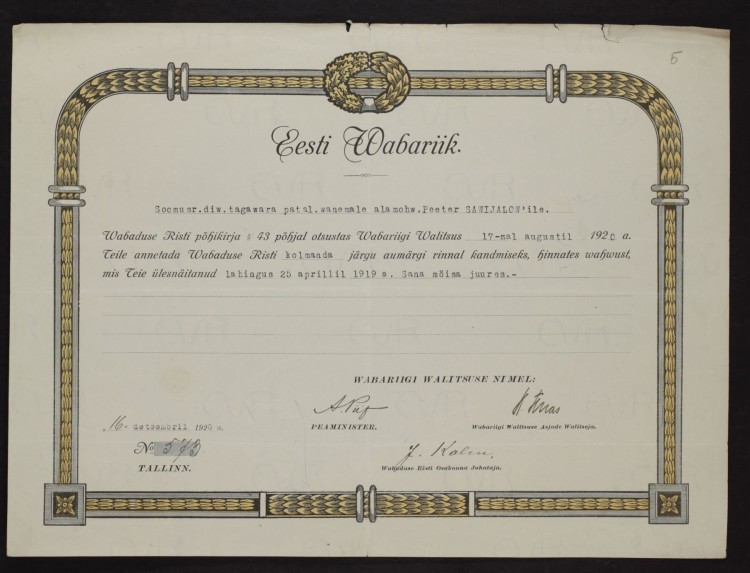 5
Eesti Wabariik.
Soomusr.diw.tagawara patal.wanemale alamohw.Peeter SAWIJALOW'ile.
Wabaduse Risti põhikirja § 43 põhjal otsustas Wabariigi Walitsus 17-mal augustil 1920 a.
Teile annetada Wabaduse Risti kolmanda järgu aumärgi rinnal kandmiseks, hinnates wahwust,
mis Teie ülesnäitanud lahingus 25 aprillil 1919 a. Sana mõisa juures.-
WABARIIGI WALITSUSE NIMEL:
16. detsembril 1920 a.
PEAMINISTER.
Wabariigi Walitsuse Asjade Walitseja.
No 573.
TALLINN.
Wabaduse Risti Osakonna Juhataja.